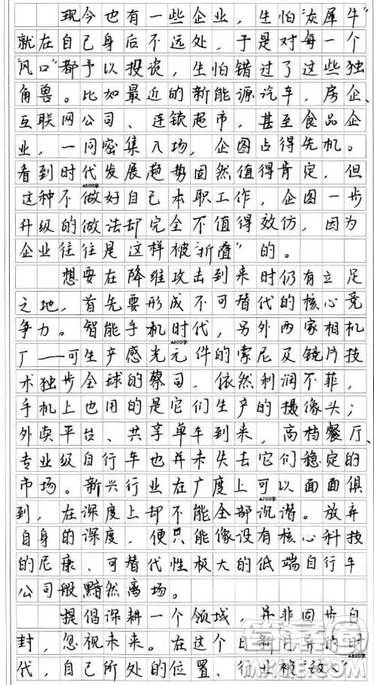 现今也有一些企业，生怕“灰犀牛”
就在自己身后不远处，于是对每一个
“风口”都予以投资，生怕错过了这些独
角兽。比如最近的新能源汽车，房企、
互联网公司、连锁超市，甚至食品企
业，一同密集入场，企图占得先机。
看到时代发展趋势固然值得肯定，但
这种不做好自己本职工作，企图一步
升级的做法却完全不值得效仿，因为
企业往往是这样被“折叠”的。
想要在降维攻击到来时仍有立足
之地，首先要形成不可替代的核心竞
争力。智能手机时代，另外两家相机
厂——可生产感光元件的索尼及镜片技
术独步全球的蔡司，依然利润不菲，
手机上也用的是它们生产的摄像头；
外卖平台、共享单车到来，高档餐厅、
专业级自行车也并未失去它们稳定的
市场。新兴行业在广度上可以面面俱
到，在深度上却不能全部沉潜。放弃
自身的深度，便只能像没有核心科技
的尼康、可替代性极大的低端自行车
公司般黯然离场。
提倡深耕一个领域，并非固步自
封，忽视未来。在这个日新月异的时
代，自己所处的位置、行业被“放心”